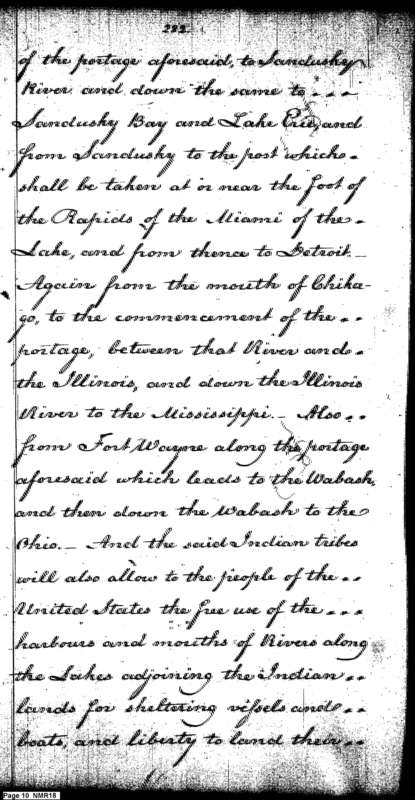 282.
of the portage aforesaid, to Sandusky
River and down the same to . . .
Sandusky Bay and Lake Erie, and
from Sandusky to the post which .
shall be taken at or near the foot of
the Rapids of the Miami of the .
Lake, and from thence to Detroit. _
Again from the mouth of Chika-
go, to the commencement of the . .
portage, between that River and .
the Illinois, and down the Illinois
River to the Mississippi. _ Also . .
from Fort Wayne along the portage
aforesaid which leads to the Wabash,
and then down the Wabash to the
Ohio. _ And the said Indian tribes
will also allow to the people of the . .
United States the free use of the . . .
harbours and mouths of Rivers along
the Lakes adjoining the Indian . .
lands for sheltering vessels and . .
boats, and liberty to land their . .
Page 10 NMR18